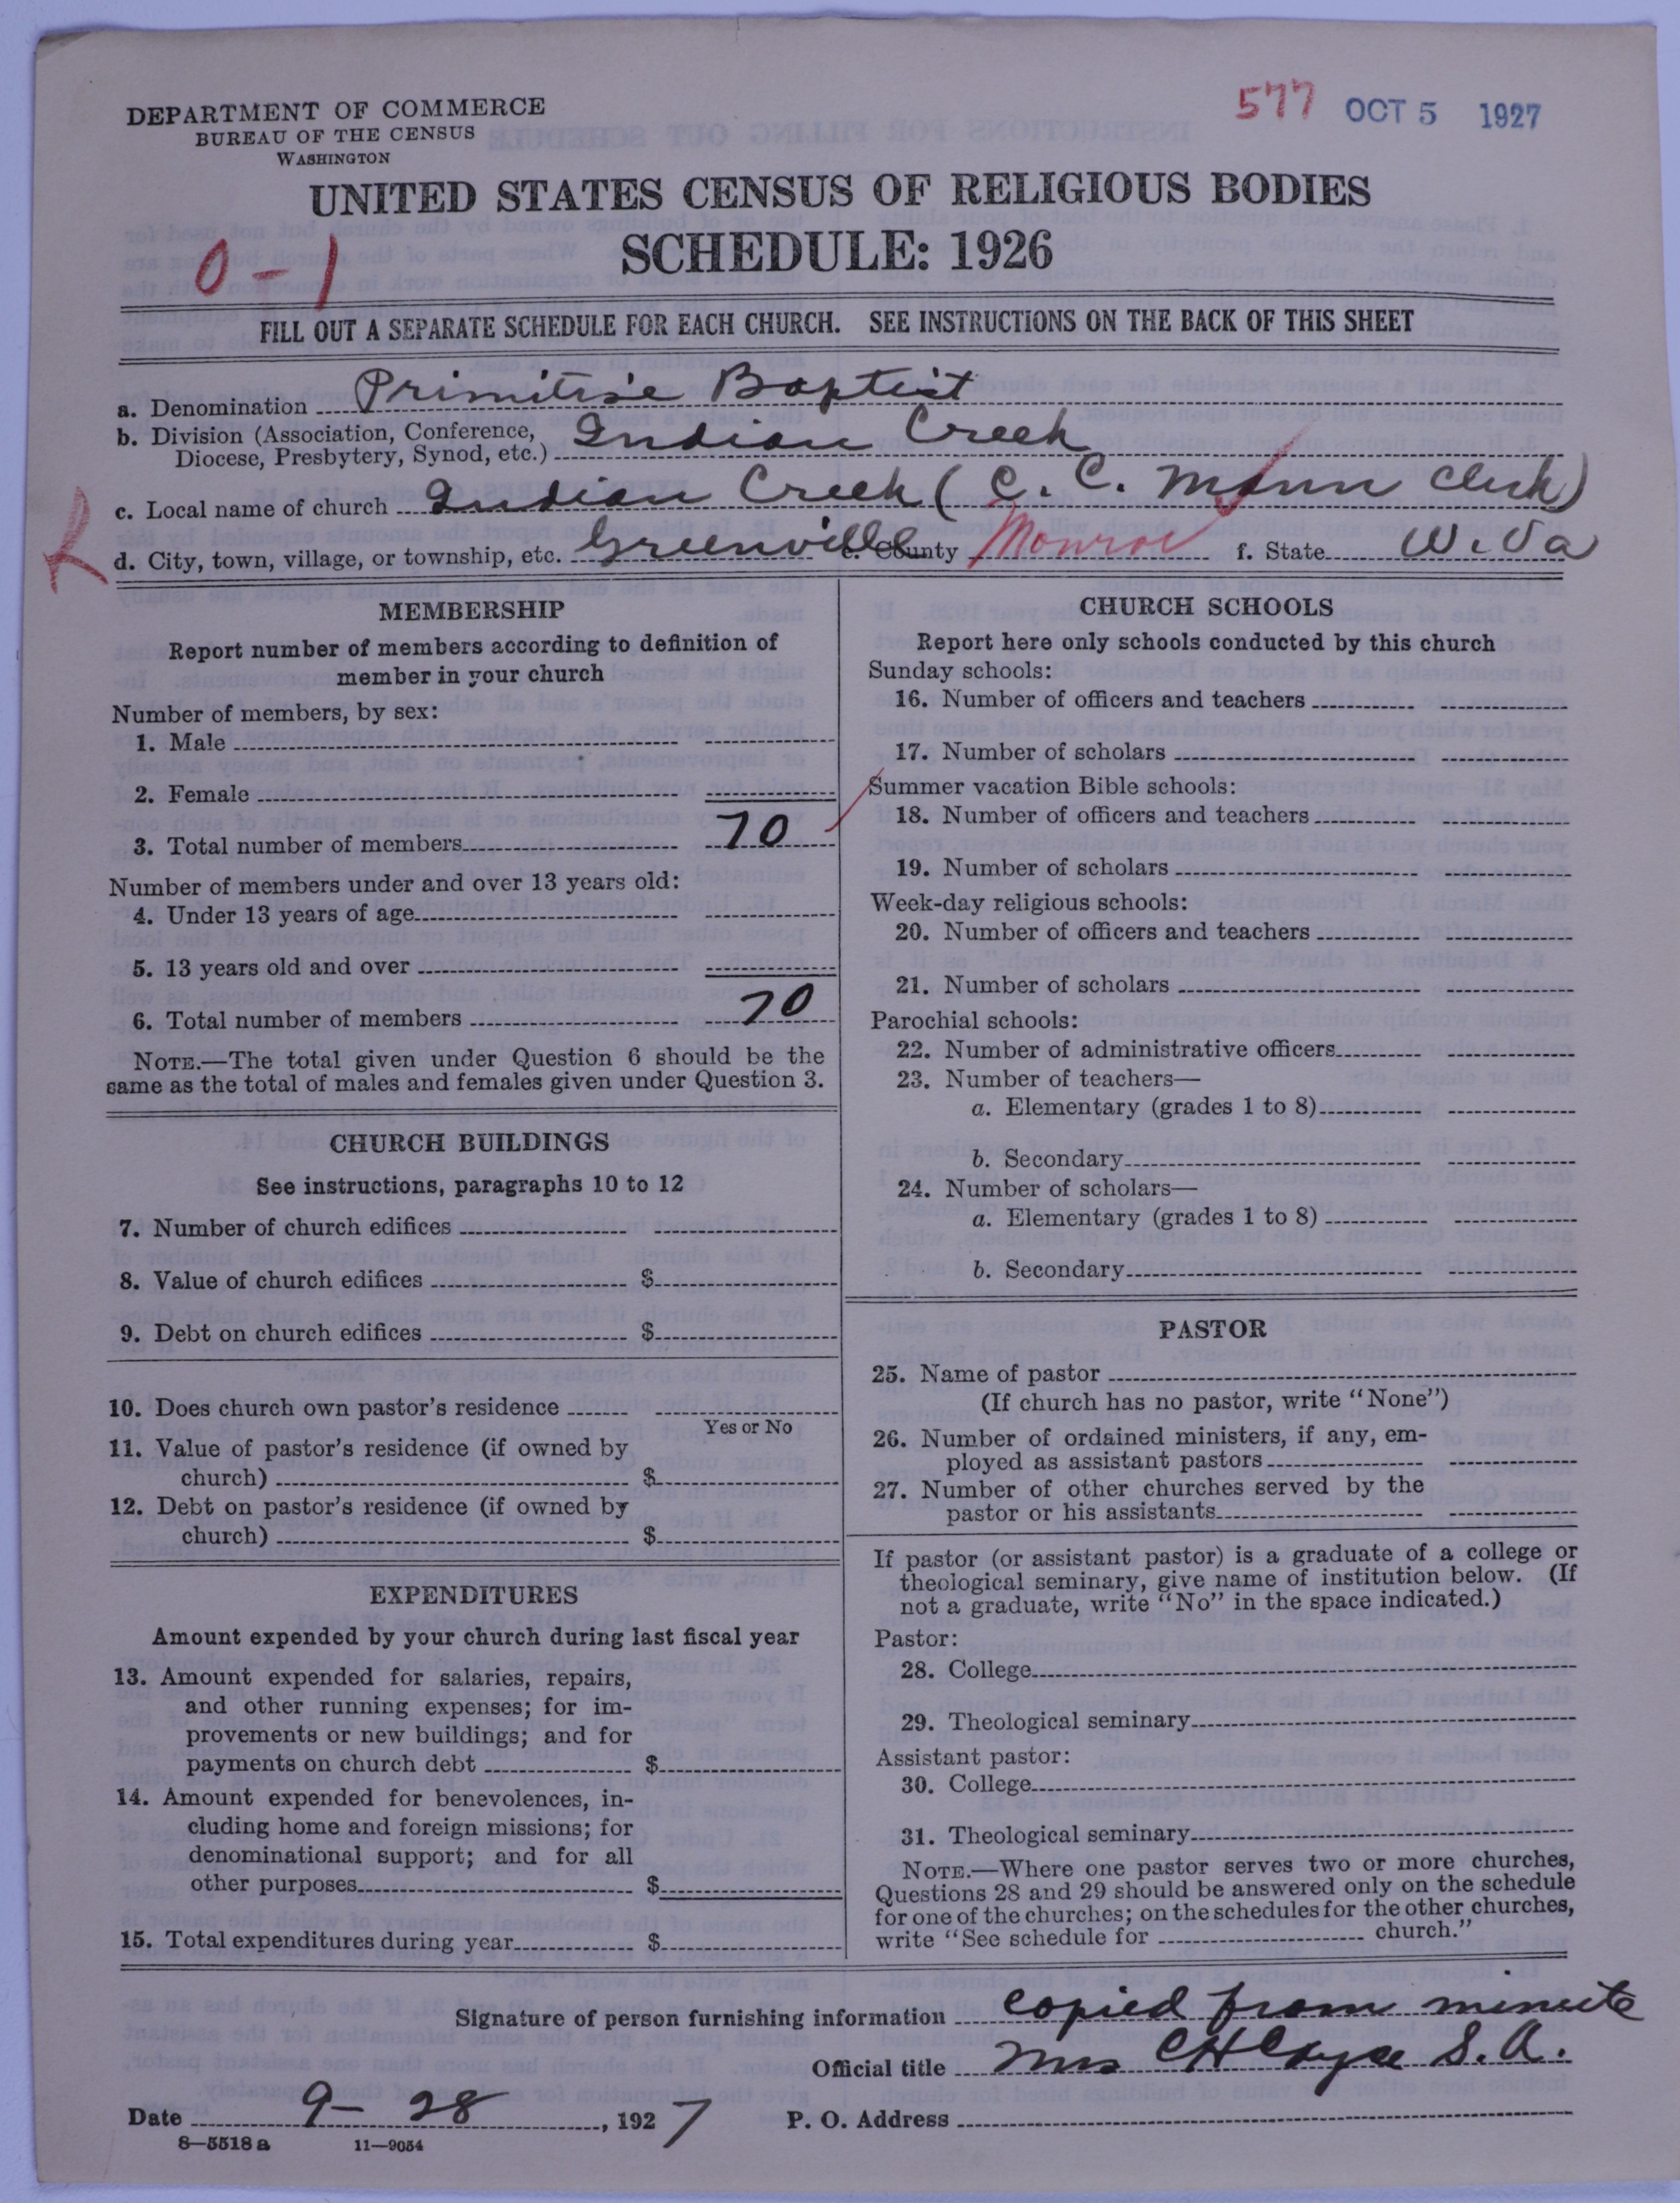 DEPARTMENT OF COMMERCE
BUREAU OF THE CENSUS
WASHINGTON
577 OCT 5 1927
UNITED STATES CENSUS OF RELIGIOUS BODIES
SCHEDULE: 1926
0-1
FILL OUT A SEPARATE SCHEDULE FOR EACH CHURCH. SEE INSTRUCTIONS ON THE BACK OF THIS SHEET
a. Denomination Primitive Baptist
b. Division (Association, Conference, Diocese, Presbytery, Synod, etc.) Indian Creek
c. Local name of church Indian Creek (C. C. Mann Clerk)
R
d. City, town, village, or township, etc. Greenville e. County Monroe f. State W. Va
MEMBERSHIP
Report number of members according to definition of
member in your church
Number of members, by sex:
1. Male
2. Female
3. Total number of members 70
Number of members under and over 13 years old:
4. Under 13 years of age
5. 13 years old and over
6. Total number of members 70
NOTE.—The total given under Question 6 should be the
same as the total of males and females given under Question 3.
CHURCH BUILDINGS
See instructions, paragraphs 10 to 12
7. Number of church edifices
8. Value of church edifices $
9. Debt on church edifices $
10. Does church own pastor's residence
Yes or No
11. Value of pastor's residence (if owned by
church) $
12. Debt on pastor's residence (if owned by
church) $
EXPENDITURES
Amount expended by your church during last fiscal year
13. Amount expended for salaries, repairs,
and other running expenses; for im-
provements or new buildings; and for
payments on church debt $
14. Amount expended for benevolences, in-
cluding home and foreign missions; for
denominational support; and for all
other purposes $
15. Total expenditures during year $
CHURCH SCHOOLS
Report here only schools conducted by this church
Sunday schools:
16. Number of officers and teachers
17. Number of scholars
Summer vacation Bible schools:
18. Number of officers and teachers
19. Number of scholars
Week-day religious schools:
20. Number of officers and teachers
21. Number of scholars
Parochial schools:
22. Number of administrative officers
23. Number of teachers—
a. Elementary (grades 1 to 8)
b. Secondary
24. Number of scholars—
a. Elementary (grades 1 to 8)
b. Secondary
PASTOR
25. Name of pastor
(If church has no pastor, write "None")
26. Number of ordained ministers, if any, em-
ployed as assistant pastors
27. Number of other churches served by the
pastor or his assistants
If pastor (or assistant pastor) is a graduate of a college or
theological seminary, give name of institution below. (If
not a graduate, write "No" in the space indicated.)
Pastor:
28. College
29. Theological seminary
Assistant pastor:
30. College
31. Theological seminary
NOTE.—Where one pastor serves two or more churches,
Questions 28 and 29 should be answered only on the schedule
for one of the churches; on the schedules for the other churches,
write "See schedule for church."
Signature of person furnishing information copied from minute
Official title Mrs C H Cayce S. A.
Date 9-28, 1927 P. O. Address
8—5518 a 11—9054